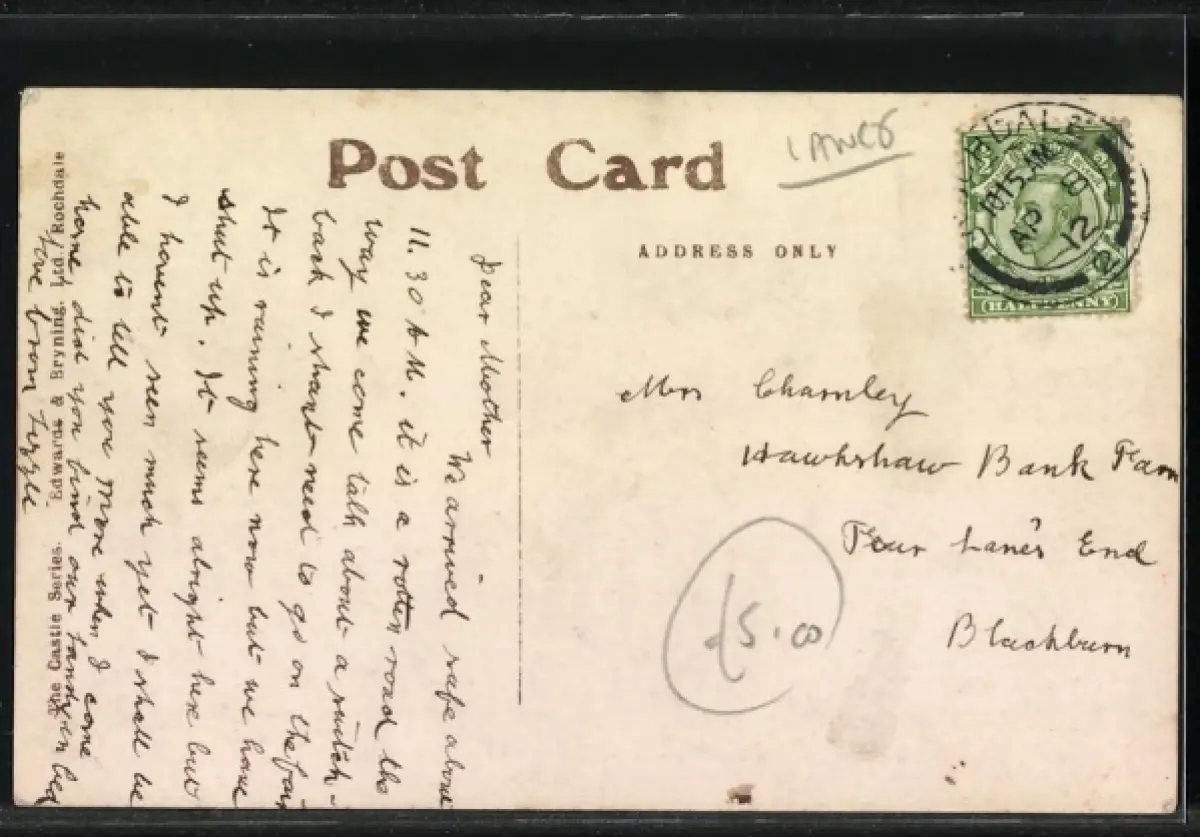 Post Card
LANCS
ADDRESS ONLY
10.15 AM
AP 8
12
HALFPENNY
Mrs Chamley
Hawkshaw Bank Farm
Four Lane's End
Blackburn
£5.00
Dear Mother
We arrived safe about
11.30 A M. it is a rotten road the
way we come talk about a switch-
back I shant need to go on the fair
It is raining here now but we have
shut up. It seems alright here but
I havent seen much yet I shall be
able to tell you more when I come
home, did you find our in bed
love from Lizzie
The Castle Series. Edwards & Bryning, Ltd., Rochdale